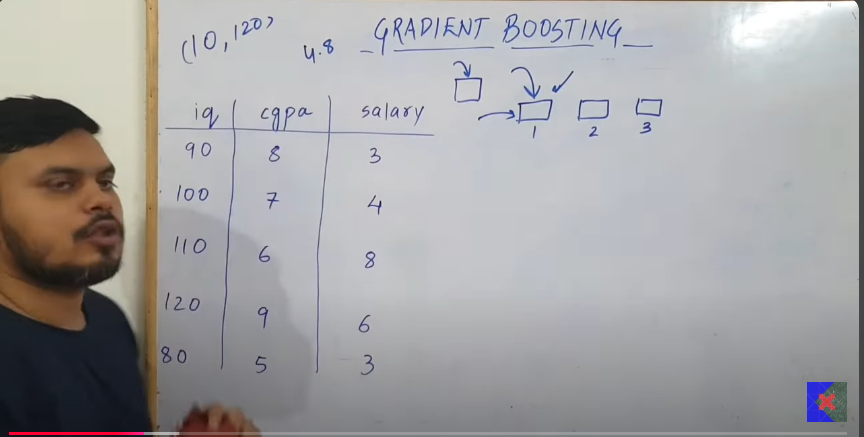 (10, 120)
4.8
GRADIENT BOOSTING
iq cgpa salary
1 2 3
90 8 3
100 7 4
110 6 8
120 9 6
80 5 3